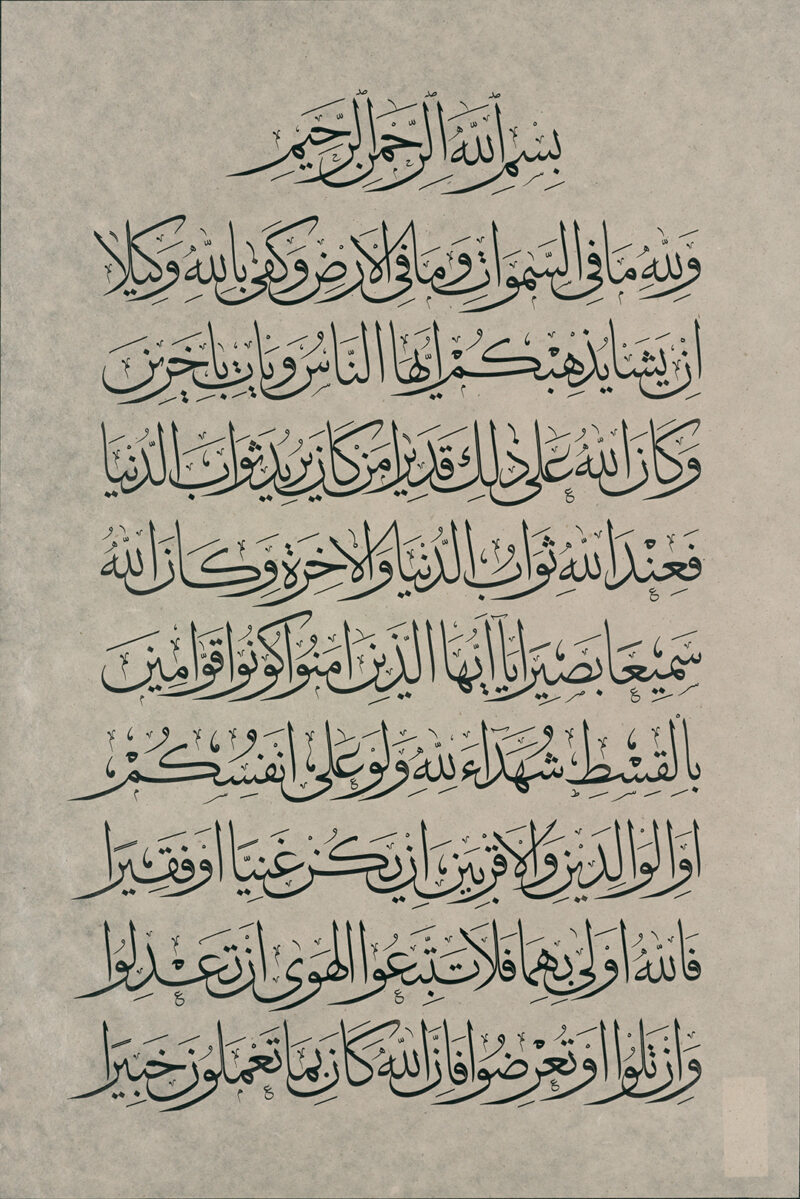 بِسْمِ اللّٰهِ الرَّحْمٰنِ الرَّحِيمِ
وَلِلّٰهِ مَا فِي السَّمٰوَاتِ وَمَا فِي الْاَرْضِ وَكَفٰى بِاللّٰهِ وَكِيلًا
اِنْ يَشَا يُذْهِبْكُمْ اَيُّهَا النَّاسُ وَيَاْتِ بِاٰخَرِينَ
وَكَانَ اللّٰهُ عَلٰى ذٰلِكَ قَدِيرًا مَنْ كَانَ يُرِيدُ ثَوَابَ الدُّنْيَا
فَعِنْدَ اللّٰهِ ثَوَابُ الدُّنْيَا وَالْاٰخِرَةِ وَكَانَ اللّٰهُ
سَمِيعًا بَصِيرًا يَٓا اَيُّهَا الَّذِينَ اٰمَنُوا كُونُوا قَوَّامِينَ
بِالْقِسْطِ شُهَدَٓاءَ لِلّٰهِ وَلَوْ عَلٰى اَنْفُسِكُمْ
اَوِ الْوَالِدَيْنِ وَالْاَقْرَبِينَ اِنْ يَكُنْ غَنِيًّا اَوْ فَقِيرًا
فَاللّٰهُ اَوْلٰى بِهِمَا فَلَا تَتَّبِعُوا الْهَوٰى اَنْ تَعْدِلُوا
وَاِنْ تَلْوُوا اَوْ تُعْرِضُوا فَاِنَّ اللّٰهَ كَانَ بِمَا تَعْمَلُونَ خَبِيرًا